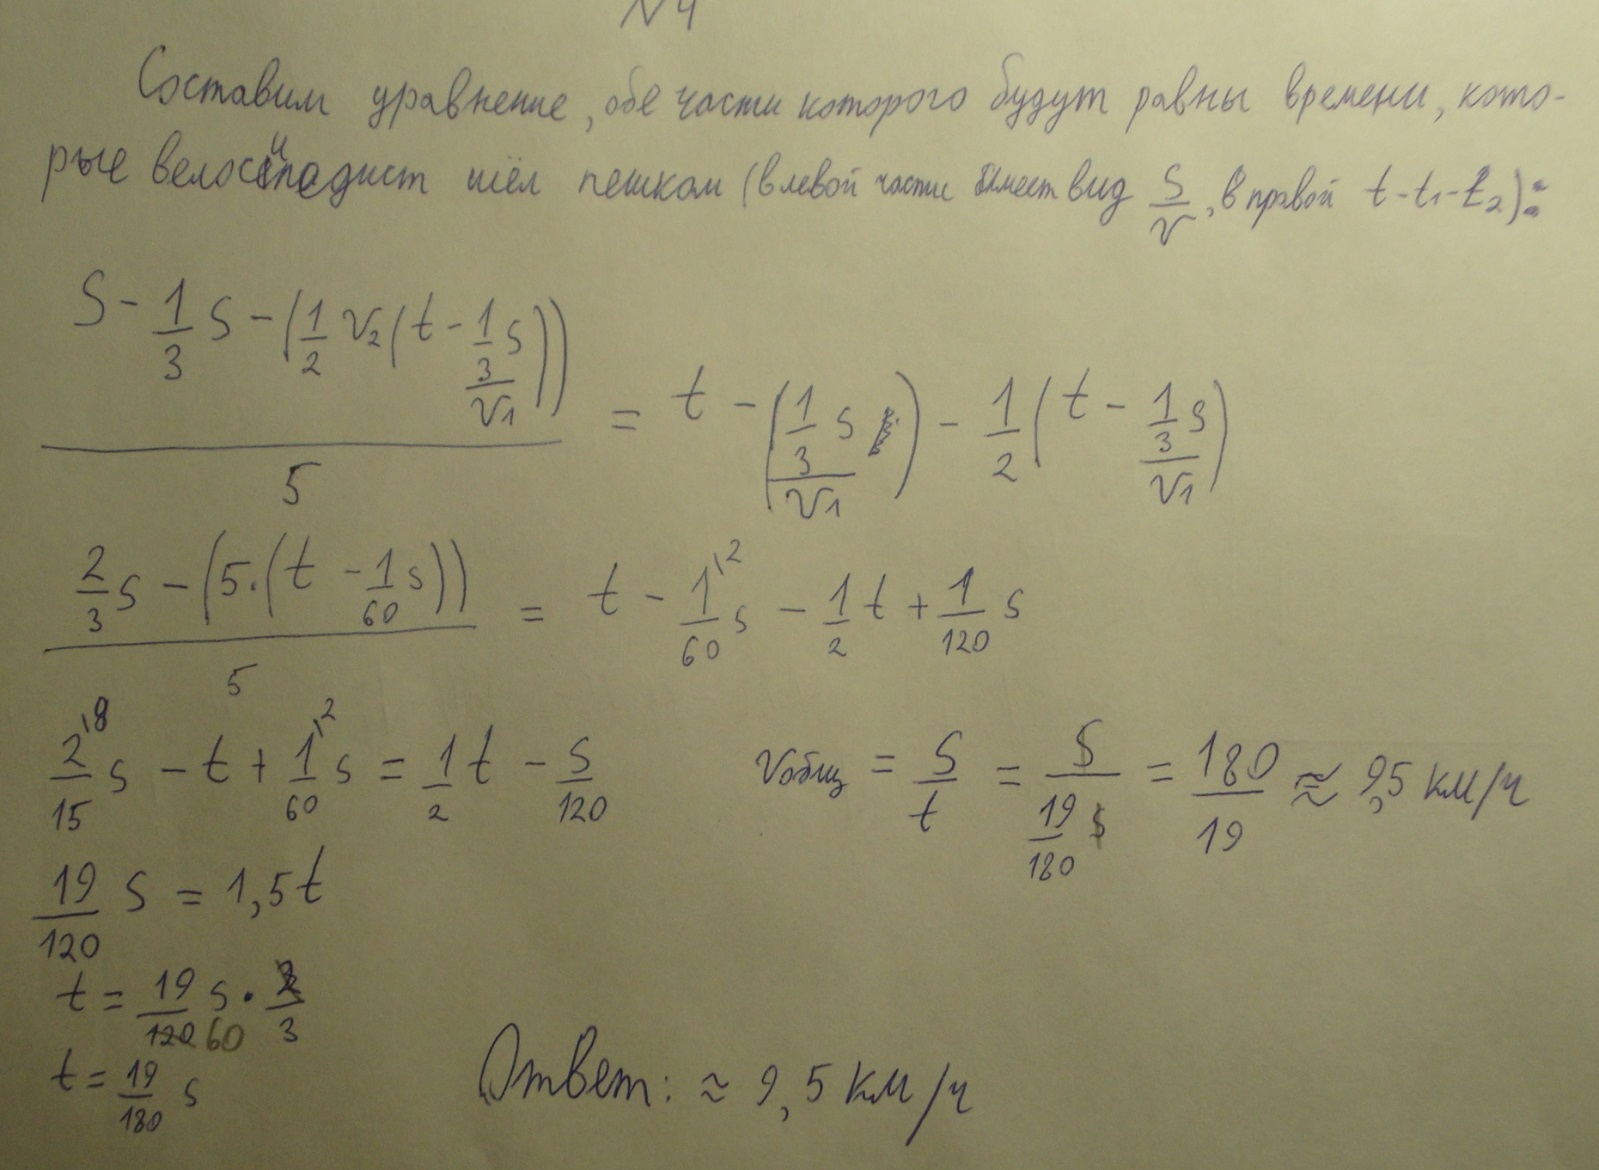 N4
Составим уравнение, обе части которого будут равны времени, кото-
рые велосипедист шёл пешком (в левой части имеет вид S/v, в правой t-t₁-t₂):
(S - 1/3 S - (1/2 v₂(t - (1/3 S)/v₁)))/5 = t - ((1/3 S)/v₁) - 1/2(t - (1/3 S)/v₁)
(2/3 S - (5·(t - 1/60 S)))/5 = t - 1\²/60 S - 1/2 t + 1/120 S
2\⁸/15 S - t + 1\²/60 S = 1/2 t - S/120
vобщ = S/t = S/(19/180 S) = 180/19 ≈ 9,5 км/ч
19/120 S = 1,5t
t = 19/120 60 S · 2/3
t = 19/180 S
Ответ: ≈ 9,5 км/ч